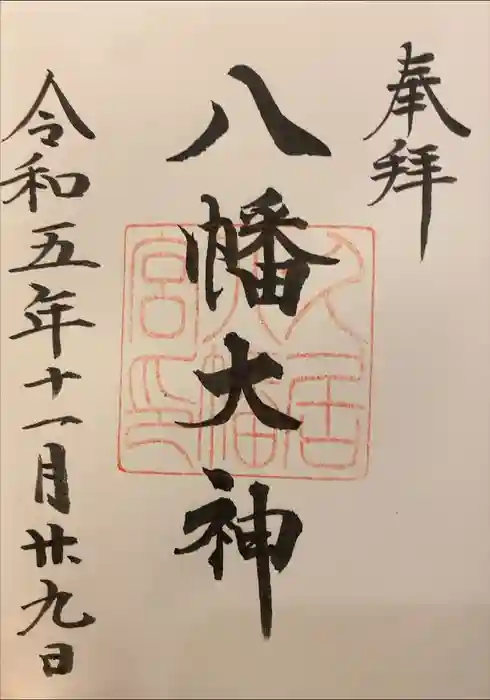 奉拝
八幡大神
久居八幡宮印
令和五年十一月廿九日